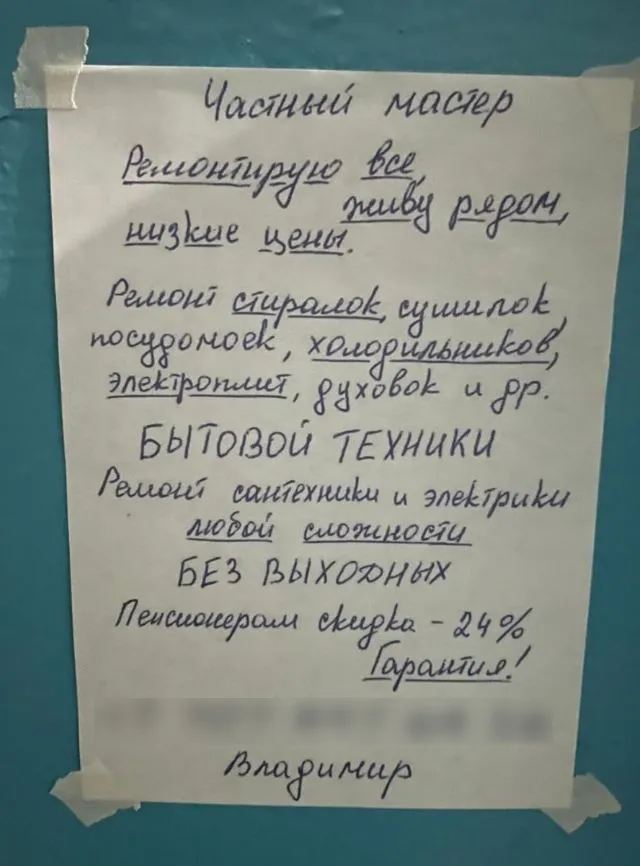 Частный мастер
Ремонтирую все,
живу рядом,
низкие цены.
Ремонт стиралок, сушилок,
посудомоек, холодильников,
электроплит, духовок и др.
БЫТОВОЙ ТЕХНИКИ
Ремонт сантехники и электрики
любой сложности
БЕЗ ВЫХОДНЫХ
Пенсионерам скидка - 24%
Гарантия!
Владимир